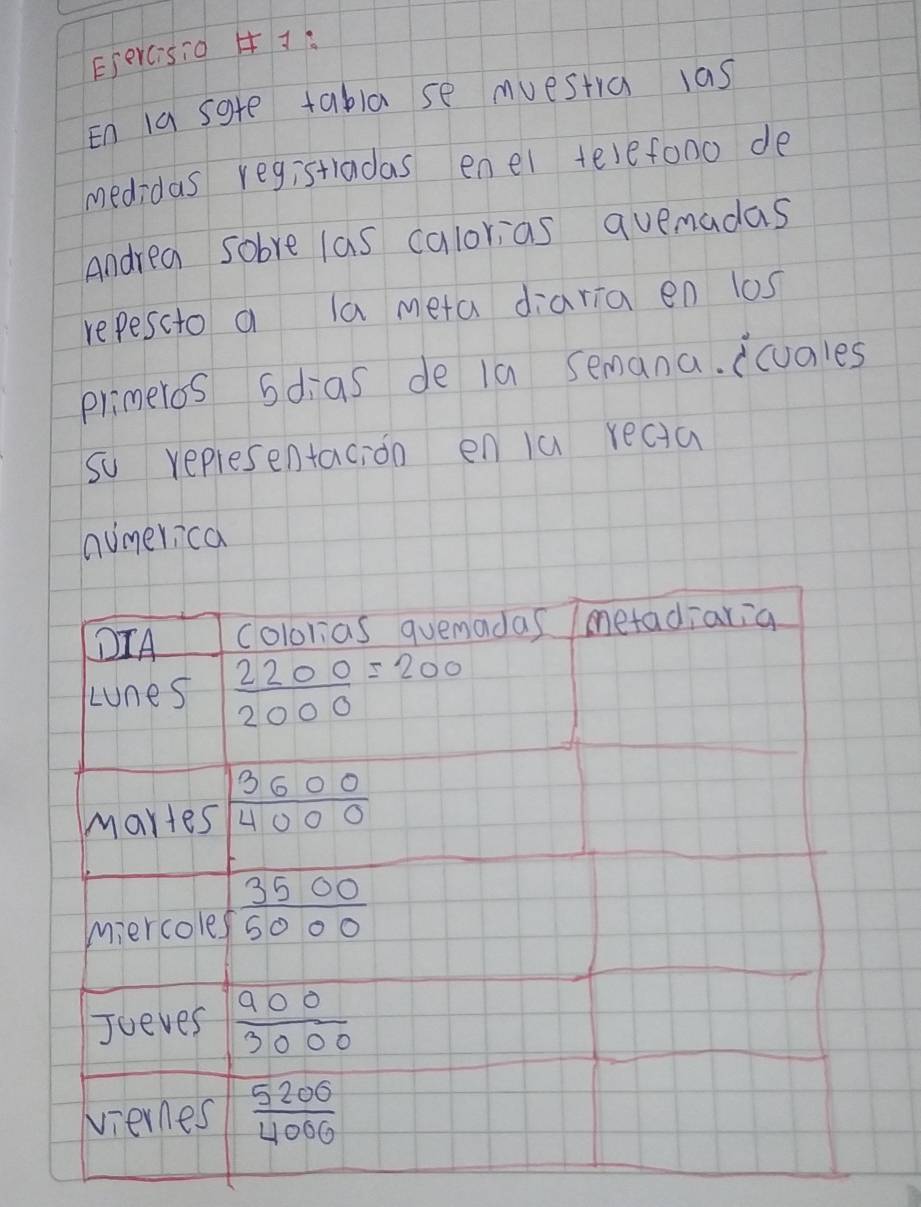 Esercisio # 1:
En la sgte tabla se muestra las
medidas registradas enel telefono de
Andrea sobre las calorias quemadas
repescto a la meta diaria en los
primeros 5dias de la semana. ¿cuales
su representación en la recta
númerica
DIA colorias quemadas metadiaria
Lunes 2200/2000 = 200
Martes 3600/4000
Miercoles 3500/5000
Jueves 900/3000
viernes 5200/4000